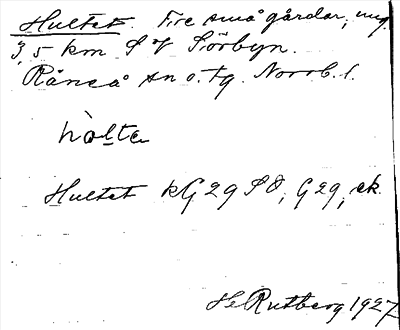 Hultet. Tre små gårdar, ung.
3,5 km S V Sörbyn.
Råneå sn o. tg. Norrb. l.
hòlta
Hultet kG 29 SO, G 29, ek.
H Rutberg 1927